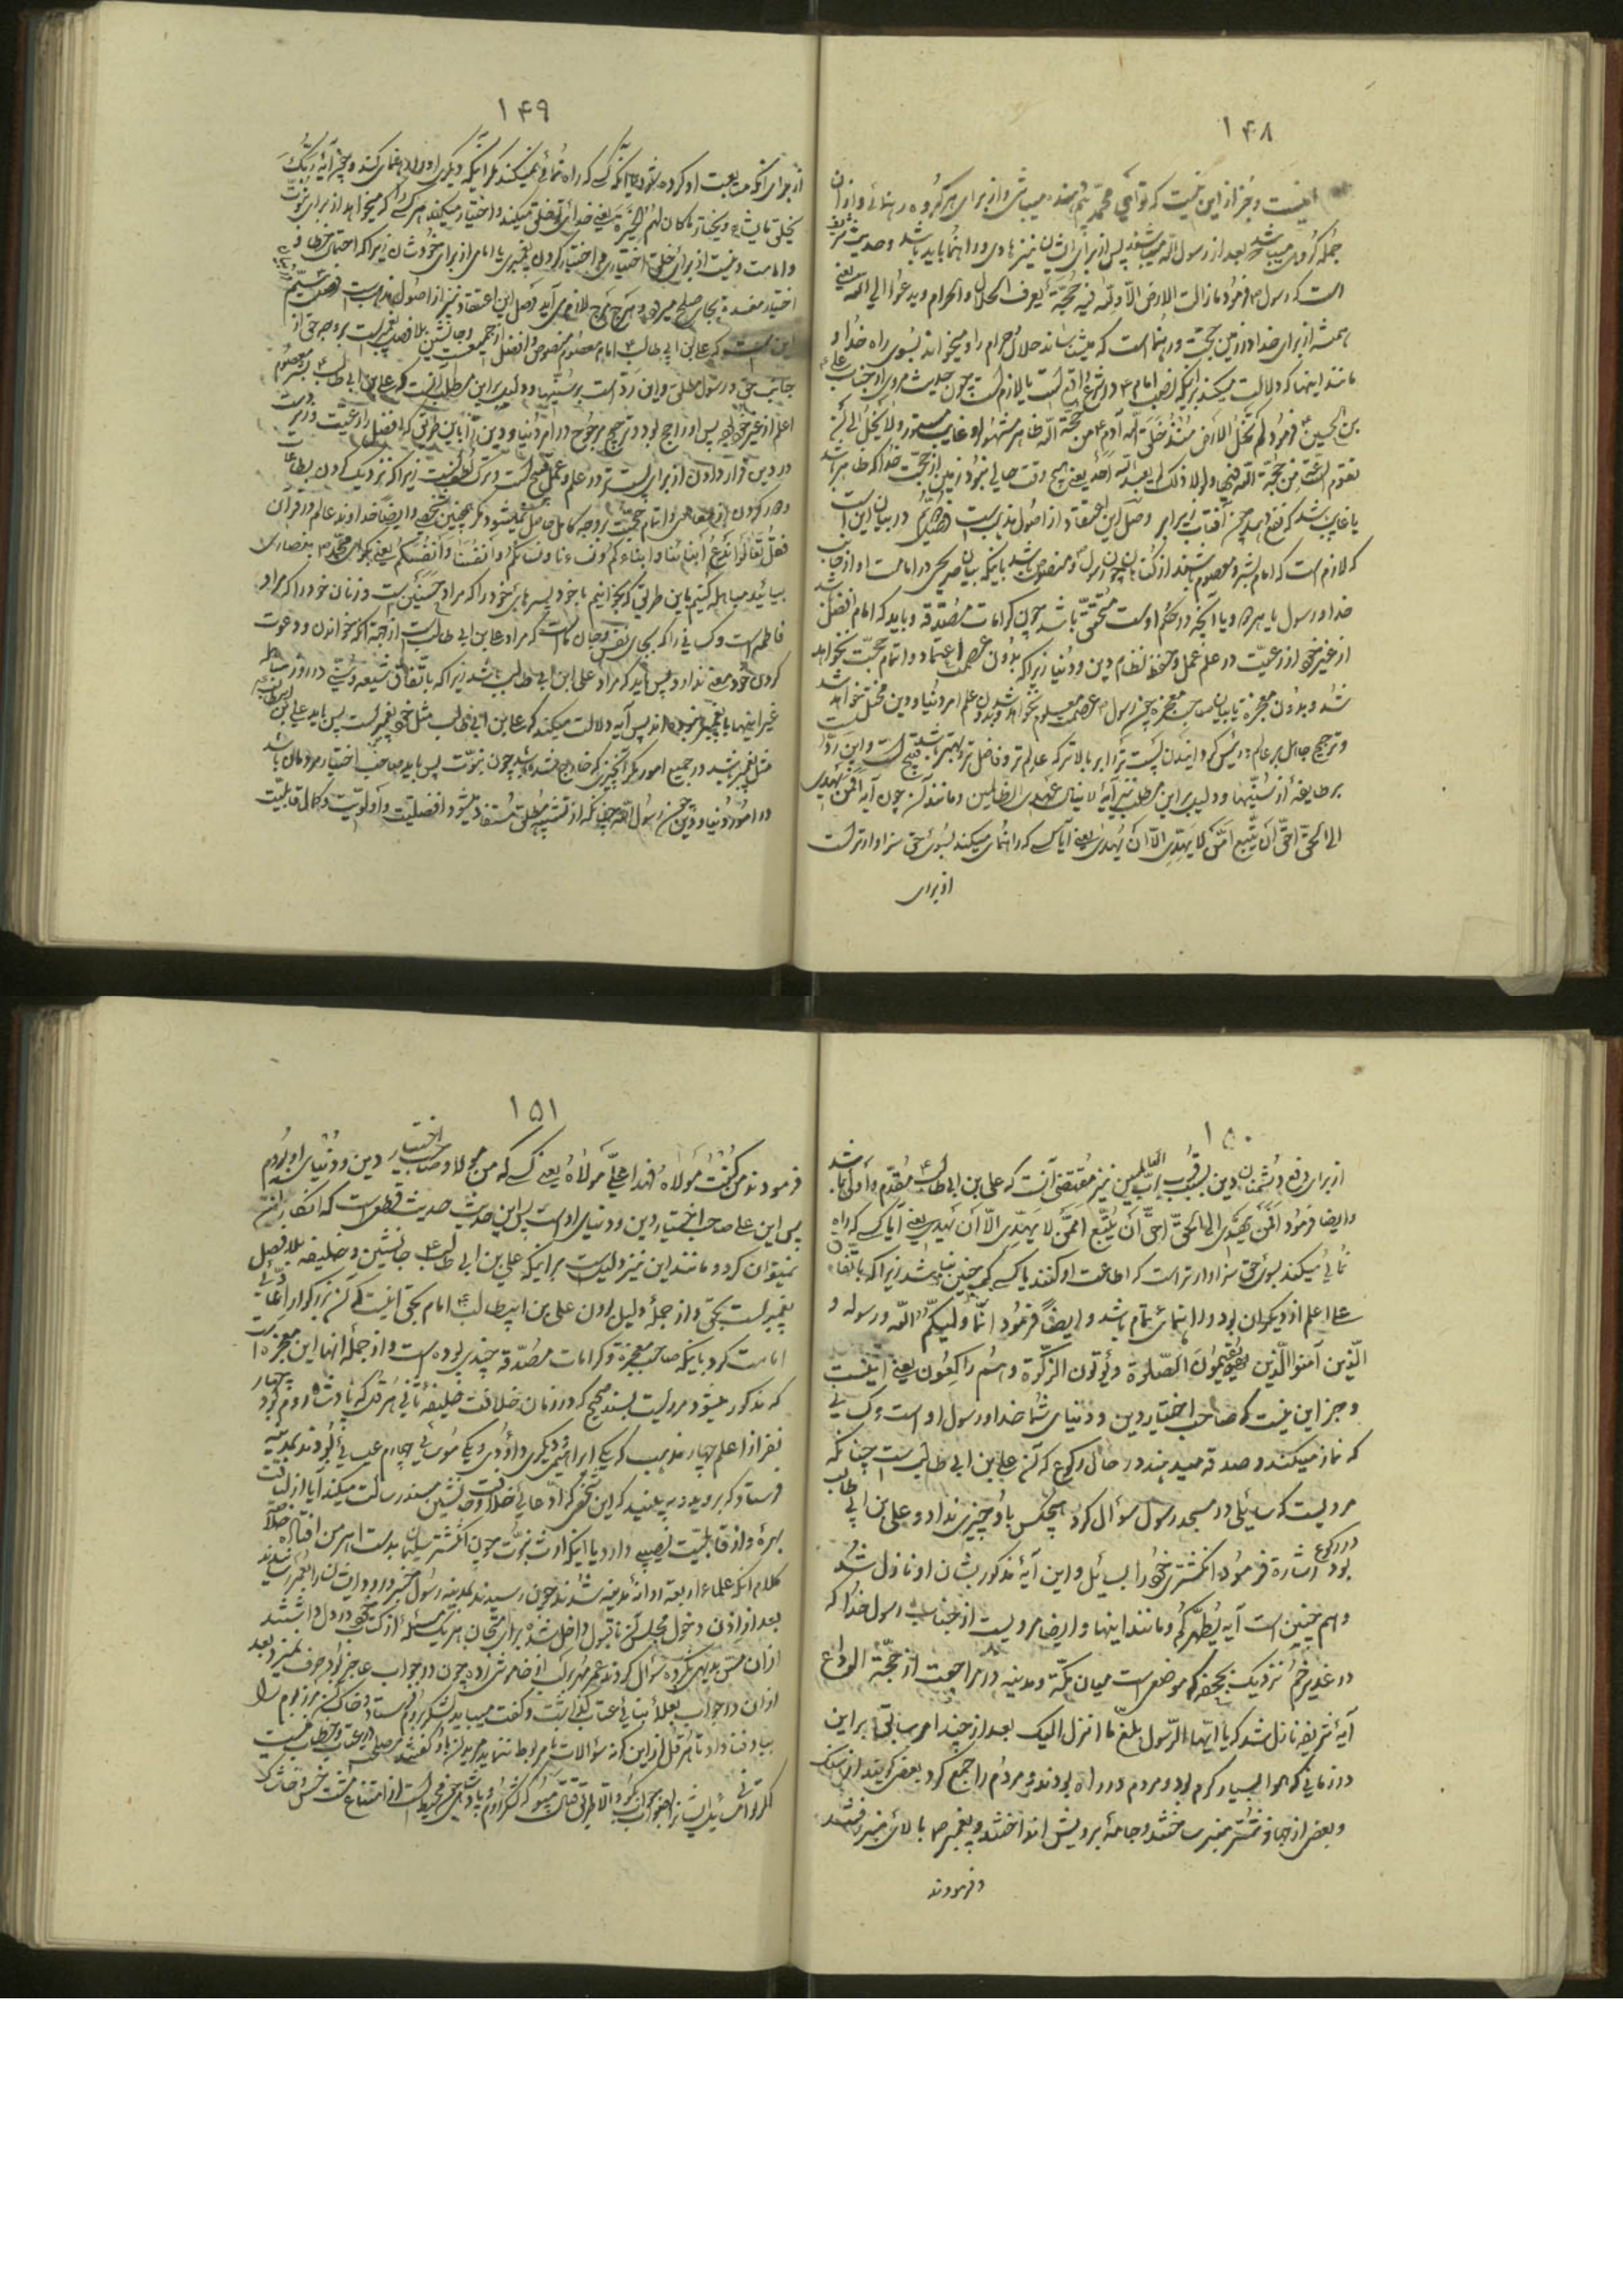 ۱۴۸
اینست و جز از این نیست که تو ای محمد بیم دهنده میباشی و از برای هر گروه رهنمائی و از آن
جمله گروهی میباشد که بعد از رسول الله میباشند پس از برای ایشان نیز هادی و راهنما باید باشد و حدیث شریف
است که رسول ص فرمود مازالت الارض الا و لله فیه حجة یعرف الحلال و الحرام و یدعوا الی الله یعنی
همیشه از برای خدا در زمین حجت و رهنما است که میشناساند حلال و حرام را و میخواند بسوی راه خدا و
مانند اینها که دلالت میکند بر اینکه نصب امام ع در شرع واقع است یا لازم است چون حدیث مروی از جناب علی
بن الحسین ع فرمود لم تخل الارض منذ خلق الله آدم ع من حجة الله ظاهر مشهور او غایب مستور و لا یخل الی ان
تقوم الساعة من حجة الله فیها و لولا ذلک لم یعبد الله احد یعنی هیچ وقت خالی نبود زمین از حجت خدا که ظاهر باشد
یا غایب باشد که نفع دهد چون آفتاب زیر ابر و صل این اعتقاد از اصول مذهب است در بیان این است
که لازم است که امام بشر و معصوم باشند از گناهان چون رسول ص و منصوص باشد باینکه بیان صریحی در امامت او از جانب
خدا و رسول یا هر دو یا آنچه در حکم اوست متحقق باشد چون کرامات مصدقه و باید که امام افضل باشد
از غیر خود از رعیت در علم و عمل و حفظ نظام دین و دنیا زیرا که بدون عصمت اعتماد و اتمام حجت نخواهد
شد و بدون معجزه یا بیان صاحب معجزه چون رسول ص عصمت معلوم نخواهد شد و بدون علم امر دنیا و دین مختل خواهد شد
و ترجیح جاهل بر عالم و رئیس گردانیدن پست تر را بر بالاتر که عالم تر و فاضل تر و بهتر باشد قبیح است و این رد است
بر طایفه از سنیها و دلیل بر این مطلب نیز آیه لا ینال عهدی الظالمین و مانند آن چون آیه افمن یهدی
الی الحق احق ان یتبع امن لا یهدی الا ان یهدی یعنی آیا کسی که راهنمائی میکند بسوی حق سزاوارتر است
از برای
۱۴۹
از برای آنکه متابعت او کرده شود یا آنکه کسی که راه نمائی نمیکند مگر آنکه دیگری او را راهنمائی کند و چون آیه ربک
یخلق ما یشاء و یختار ما کان لهم الخیرة یعنی خدای تو خلق میکند و اختیار میکند هر کسی را که میخواهد از برای نبوت
و امامت و نیست از برای خلق اختیاری در اختیار کردن پیغمبری یا امامی از برای خودشان زیرا که احتمال خطا و
اختیار مفسد بجای صلح میرود و هرج مرج لازم می آید و صل این اعتقاد نیز از اصول مذهب است
این است که علی بن ابی طالب ع امام معصوم منصوص و افضل از جمیعست و جانشین بلا فصل پیغمبر است بر وجه حق از
جانب حق و رسول مطلق و این رد است بر سنیها و دلیل بر این مطلب آنست که علی بن ابی طالب ع بشر معصوم
اعلم از غیر خود بود پس او راجح بود و ترجیح مرجوح در امر دنیا و دین باین طریق که افضل را رعیت و زیردست
در دین قرار دادن از برای پست تر در علم و عمل قبیح است و ترک لطف نیست زیرا که نزدیک کردن بطاعات
و دور کردن از معاصی و اتمام حجت بر وجه کامل حاصل نمیشود مگر بچنین شخصی و ایضا خداوند عالم در قرآن
فقل تعالوا ندع ابنائنا و ابناءکم و نساءنا و نساءکم و انفسنا و انفسکم یعنی بگو ای محمد ص به نصارای
بیائید مباهله کنیم باین طریق که بخوانیم ما خود پسرهای خود را که مراد حسنین است و زنان خود را که مراد
فاطمه است و کسانی را که بجای نفس و جان ما است که مراد علی بن ابی طالب است از جهة آنکه خواندن و دعوت
کردن خود معنی ندارد پس باید که مراد علی ابن ابی طالب باشد زیرا که باتفاق شیعه و سنی در روز مباهله
غیر اینها با پیغمبر نبوده اند پس آیه دلالت میکند که علی بن ابی طالب مثل خود پیغمبر است پس باید علی ابن ابی طالب
مثل پیغمبر باشد در جمیع امور مگر آنچیزی که خارج شده باشد چون نبوت پس باید صاحب اختیار مردمان باشد
در امور دنیا و دین چون رسول الله چنانکه از تشبیه مطلق مستفاد میشود افضلیت و اولویت و کمال قابلیت
۱۵۰
از برای رفع دشمنان دین بقرب رب العالمین نیز مقتضی آنست که علی بن ابی طالب ع مقدم و اولی باشد
و ایضا فرمود افمن یهدی الی الحق احق ان یتبع امن لا یهدی الا ان یهدی یعنی آیا کسی که راه
نمائی میکند بسوی حق سزاوارتر است که اطاعت او کنند یا کسی که چنین نباشد زیرا که باتفاق
علی اعلم از دیگران بود و راهنمائی تمام باشد و ایضا فرمود انما ولیکم الله و رسوله و
الذین آمنوا الذین یقیمون الصلوة و یؤتون الزکوة و هم راکعون یعنی اینست
و جز این نیست که صاحب اختیار دین و دنیای شما خدا و رسول او است و کسانی
که نماز میکنند و صدقه میدهند در حال رکوع که آن علی بن ابی طالب است چنانکه
مرویست که سائلی در مسجد رسول سؤال کرد هیچکس باو چیزی نداد و علی بن ابی طالب
در رکوع
بود اشاره فرمود انگشتری خود را بسائل و این آیه مذکور بشان او نازل شد
و هم چنین است آیه یطهرکم و مانند اینها و ایضا مرویست از جناب رسول خدا که
در غدیر خم نزدیک بجحفه که موضعی است میان مکه و مدینه در مراجعت از حجة الوداع
آیه شریفه نازل شد که یا ایها الرسول بلغ ما انزل الیک بعد از چند امر سابق بر این
در زمانی که هوا بسیار گرم بود و مردم در راه بودند و مردم را جمع کرد بعضی گویند از سنگ
و بعضی از جهاز شتر منبر ساختند و جامه برویش انداختند و پیغمبر ص بالای منبر رفتند
و فرمودند
۱۵۱
فرمودند من کنت مولاه فهذا علی مولاه یعنی کسی که من مولا و صاحب اختیار دین و دنیای او بودم
پس این علی صاحب اختیار دین و دنیای اوست پس این حدیث حدیث قطعی است که انکارش
نمیتوان کرد و مانند این نیز دلیل است بر اینکه علی بن ابی طالب ع جانشین و خلیفه بلا فصل
پیغمبر است بحق و از جمله دلیل بودن علی بن ابیطالب ع امام بحق اینست که آن بزرگوار ادعای
امامت کرد باینکه صاحب معجزه و کرامات مصدقه چندی بوده است و از جمله آنها این معجزه است
که مذکور میشود مرویست بسند صحیح که در زمان خلافت خلیفه ثانی هرقل که پادشاه روم بود چهار
نفر از اعلم چهار مذهب که یکی ابراهیمی و دیگری داودی و یکی موسائی چهارم عیسائی بودند بمدینه
فرستاد که بروید و به بینید که این شخص که ادعای خلافت و جانشین مسند رسالت میکند آیا از لیاقت
بهره و از قابلیت نصیبی دارد یا اینکه ارث نبوت چون انگشتر سلیمان بدست اهرمن افتاده خلاصه
کلام آنکه علماء اربعه روانه مدینه شدند چون رسیدند بمدینه رسول خبر ورود ایشان را بعمر رسانیدند
بعد از اذن دخول مجلس آن نامقبول داخل شده برای امتحان هر یک مسئله از کتاب خود در دل داشتند
از آن متن بدیهی کرده سؤال کردند عمر مهر بر لب از خاموشی زده چون در جواب عاجز بود حرف نمیزد بعد